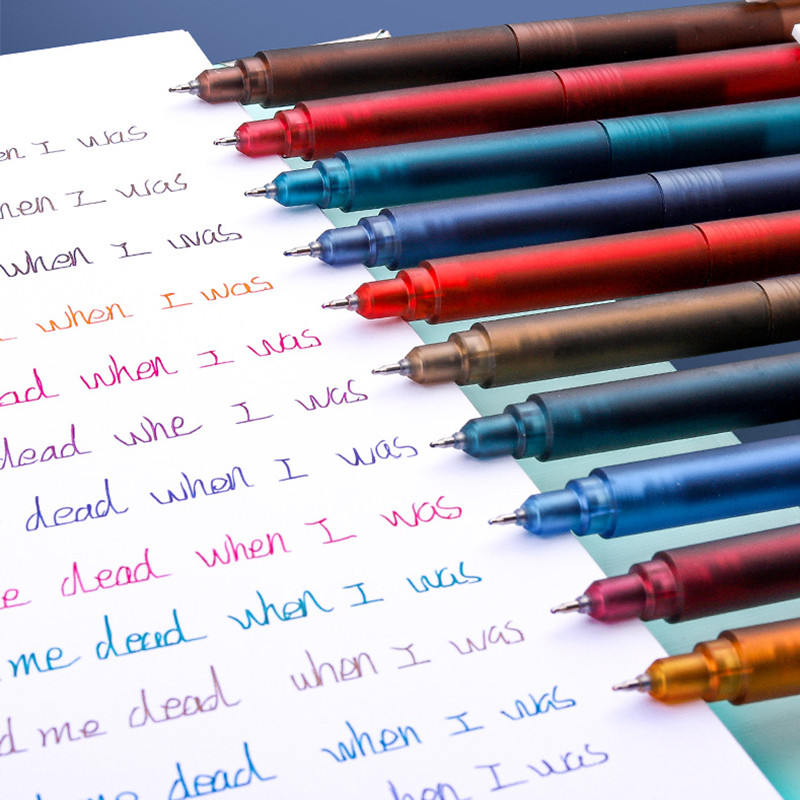 I was
I was
when I was
when I was
when I was
dead whe I was
dead when I was
dead when I was
me dead when I was
me dead when I was
dead when I was
I was